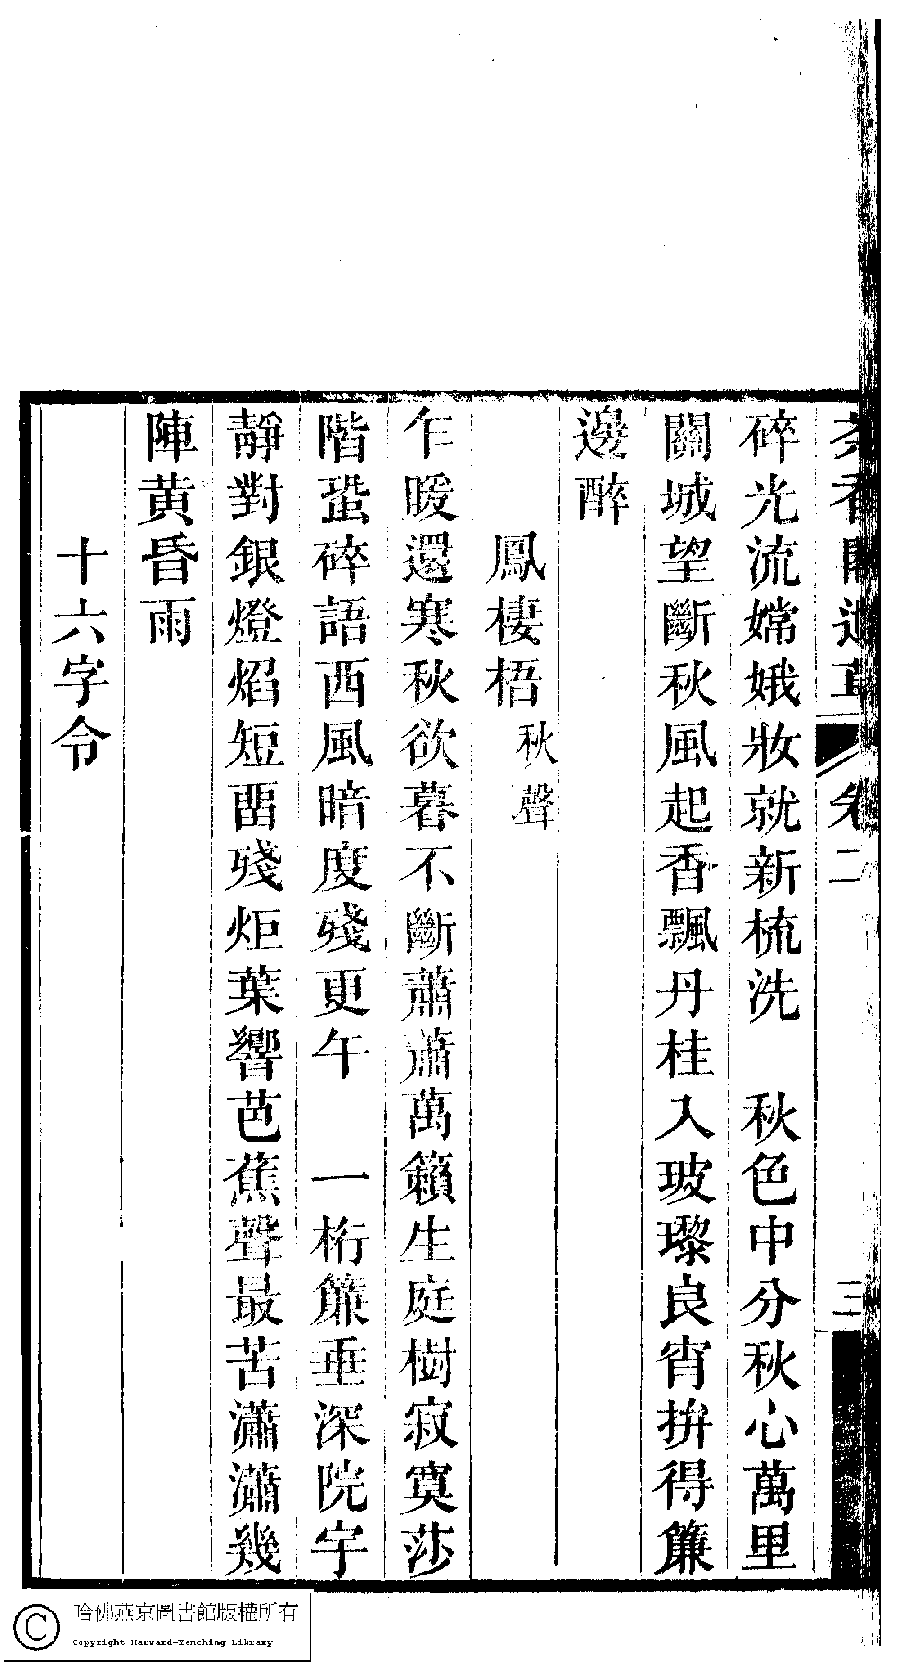 碎光流嫦娥妝就新梳洗　秋色中分秋心萬里
關城望斷秋風起香飄丹桂入玻瓈良宵拚得簾
邊醉
鳳棲梧秋聲
乍暖還寒秋欲暮不斷蕭蕭萬籟生庭樹寂寞莎
階蛩碎語西風暗度殘更午　一桁簾垂深院宇
靜對銀燈焰短畱殘炬葉響芭蕉聲最苦瀟瀟幾
陣黄昏雨
十六字令
卷二
三
哈佛燕京圖書館版權所有
Copyright Harvard-Yenching Library